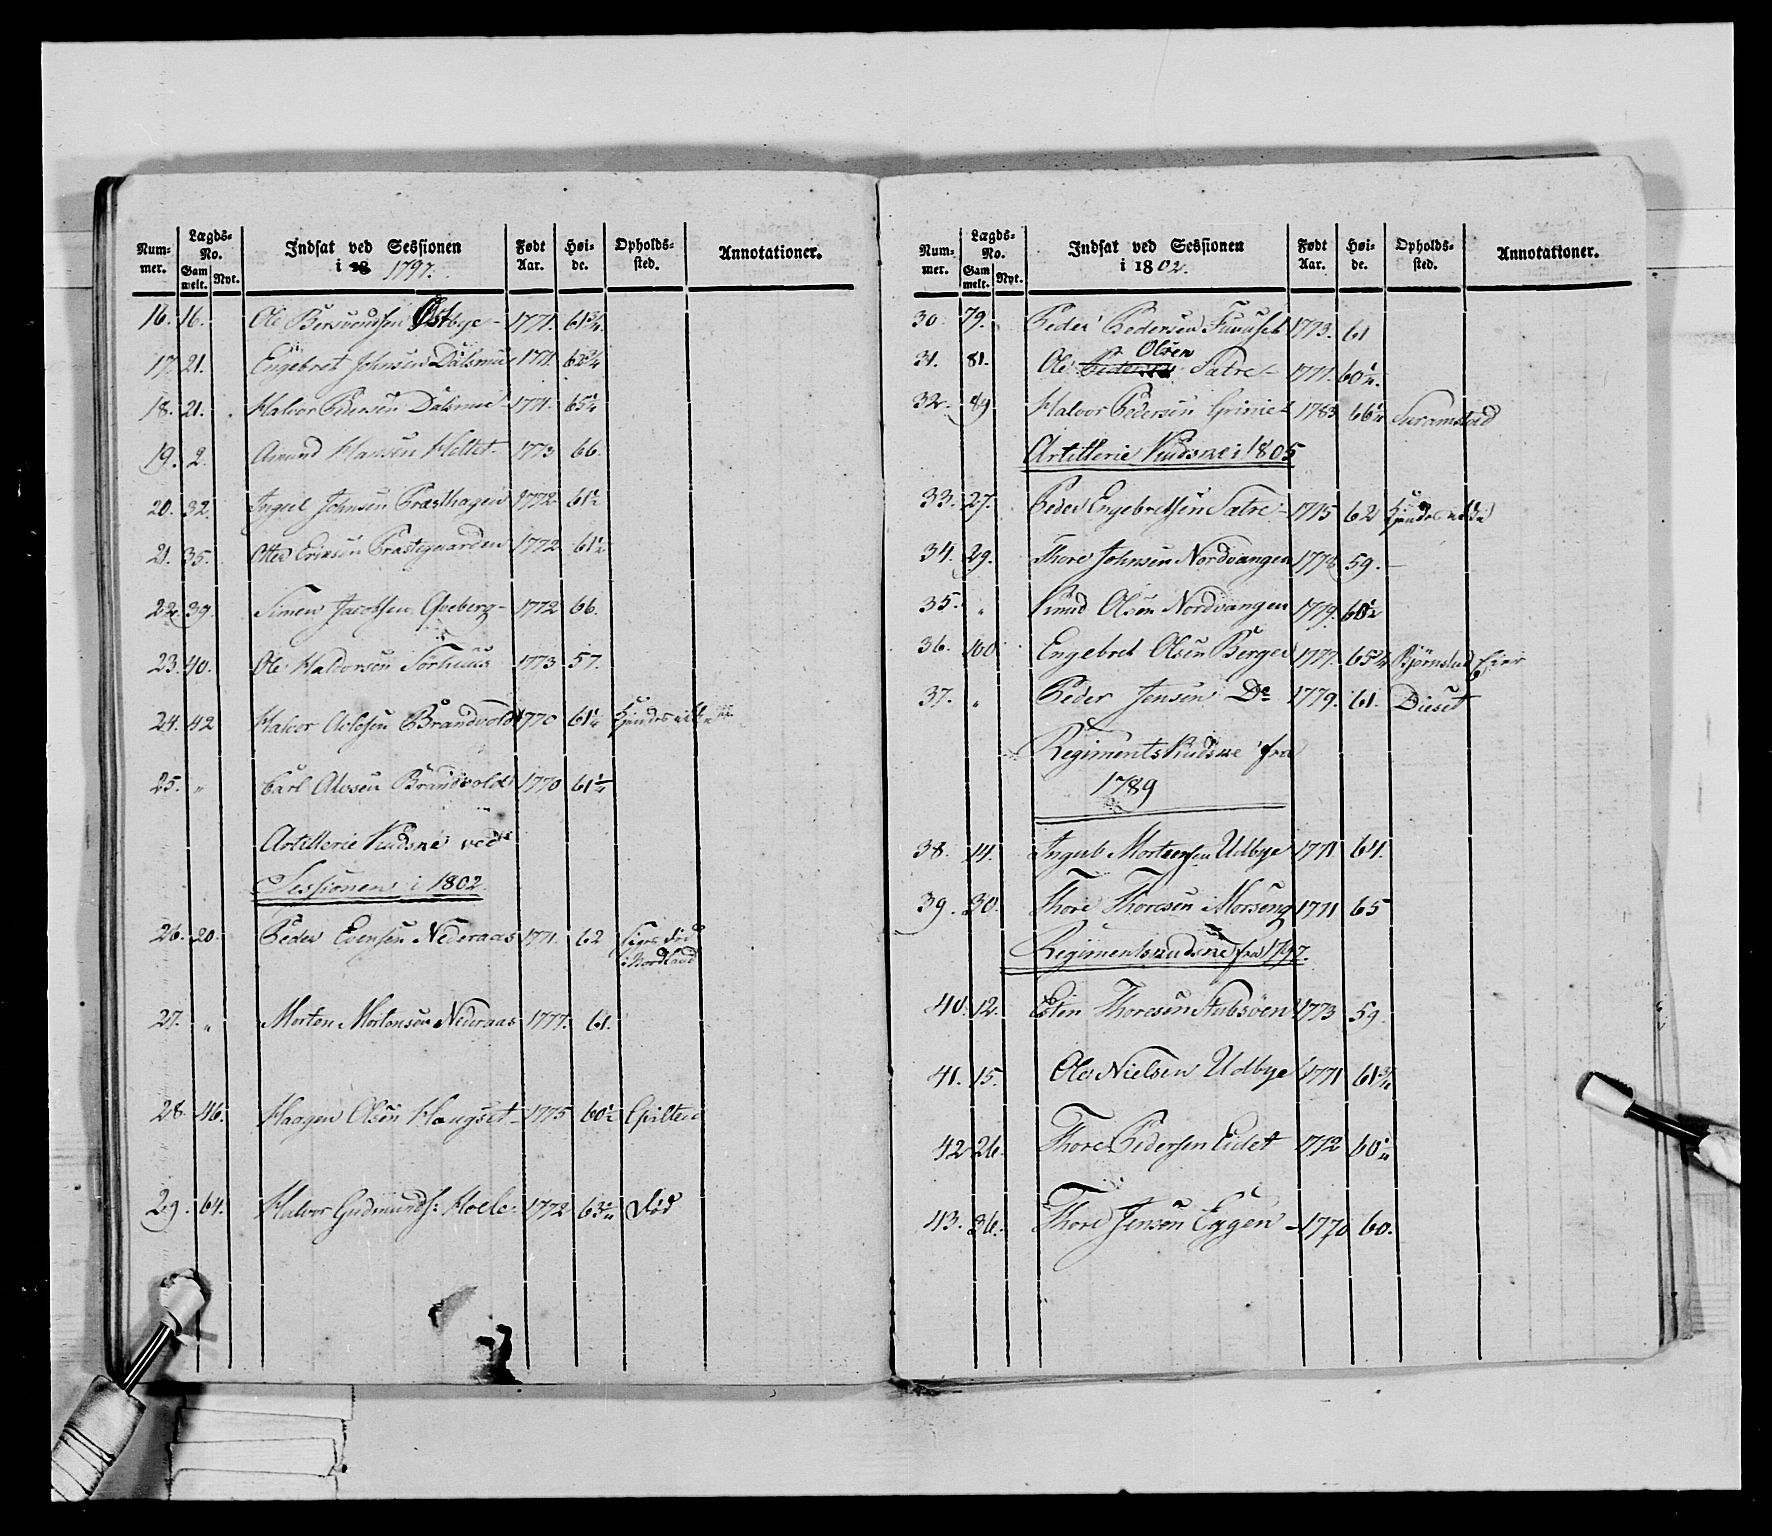 Num-mer. Lægds-No. Gam melt. Nyt. Indsat ved Sessionen i 18 1797. Født Aar. Høi-de. Opholds-sted. Annotationer.
16. 16. Ole Østbye - 1771. 61¾
17. 21. Engebret Johnsen Dalsmue 1771.
18. 21. Halvor Pedersen Dalsmue - 1771. 65½
19. 2. Amund Hansen Heltet 1773 66.
20. 32. Johnsen Præsthagen 1772 61½
21. 35. Erichsen Præstegaarden 1772 61½
22. 39. Simen Jacobsen Qveberg - 1772 66.
23. 40. Ole Haldorsen 1773 57.
24. 42 Halvor Brandvold 1770 61¼
25. " Carl Brandvold 1770 61½
Artillerie Kudske ved
Sessionen i 1802.
26. 20. Peder Evensen Nederaas 1771. 62 siges død
i Nordland
27. " Morten Mortensen Nederaas 1777. 61.
28. 46. Haagen Olsen Haugset - 1775 60½
29. 64. Halvor Gudmunds: Hoele. 1772 død
Num-mer. Lægds-No. Gam melt. Nyt. Indsat ved Sessionen i 1802. Født Aar. Høi-de. Opholds-sted. Annotationer.
30. 79. Peder Pedersen Furuset 1773. 61
31. 81. Ole Olsen Sætre - 1771. 60½
32. 89 Halvor Pedersen 1783
Artillerie Kudske i 1805
33. 27. Peder Engebretsen Sætre - 1775 62
34. 29. Thore Johnsen Nordvangen 1778 59. -
35. " Knud Olsen Nordvangen 1779.
36. 100 Engebret Olsen Berger 1777. Bjørnstad Eier
37. " Peder Jensen Do 1779. 61. Diset
Regiments Kudske fra
1789
38. 14. Mortensen Udbye 1771 64.
39. 30. Thore Thoresen Morseng 1771 65
Regimentskudske fra 1797.
40. 12. Esten Thoresen Stubsøen 1773 59.
41. 15. Ole Nielsen Udbye 1771 61¾
42 26. Thore Pedersen Eidet 1772
43. 36. Thore Jensen Eggen - 1770 60.